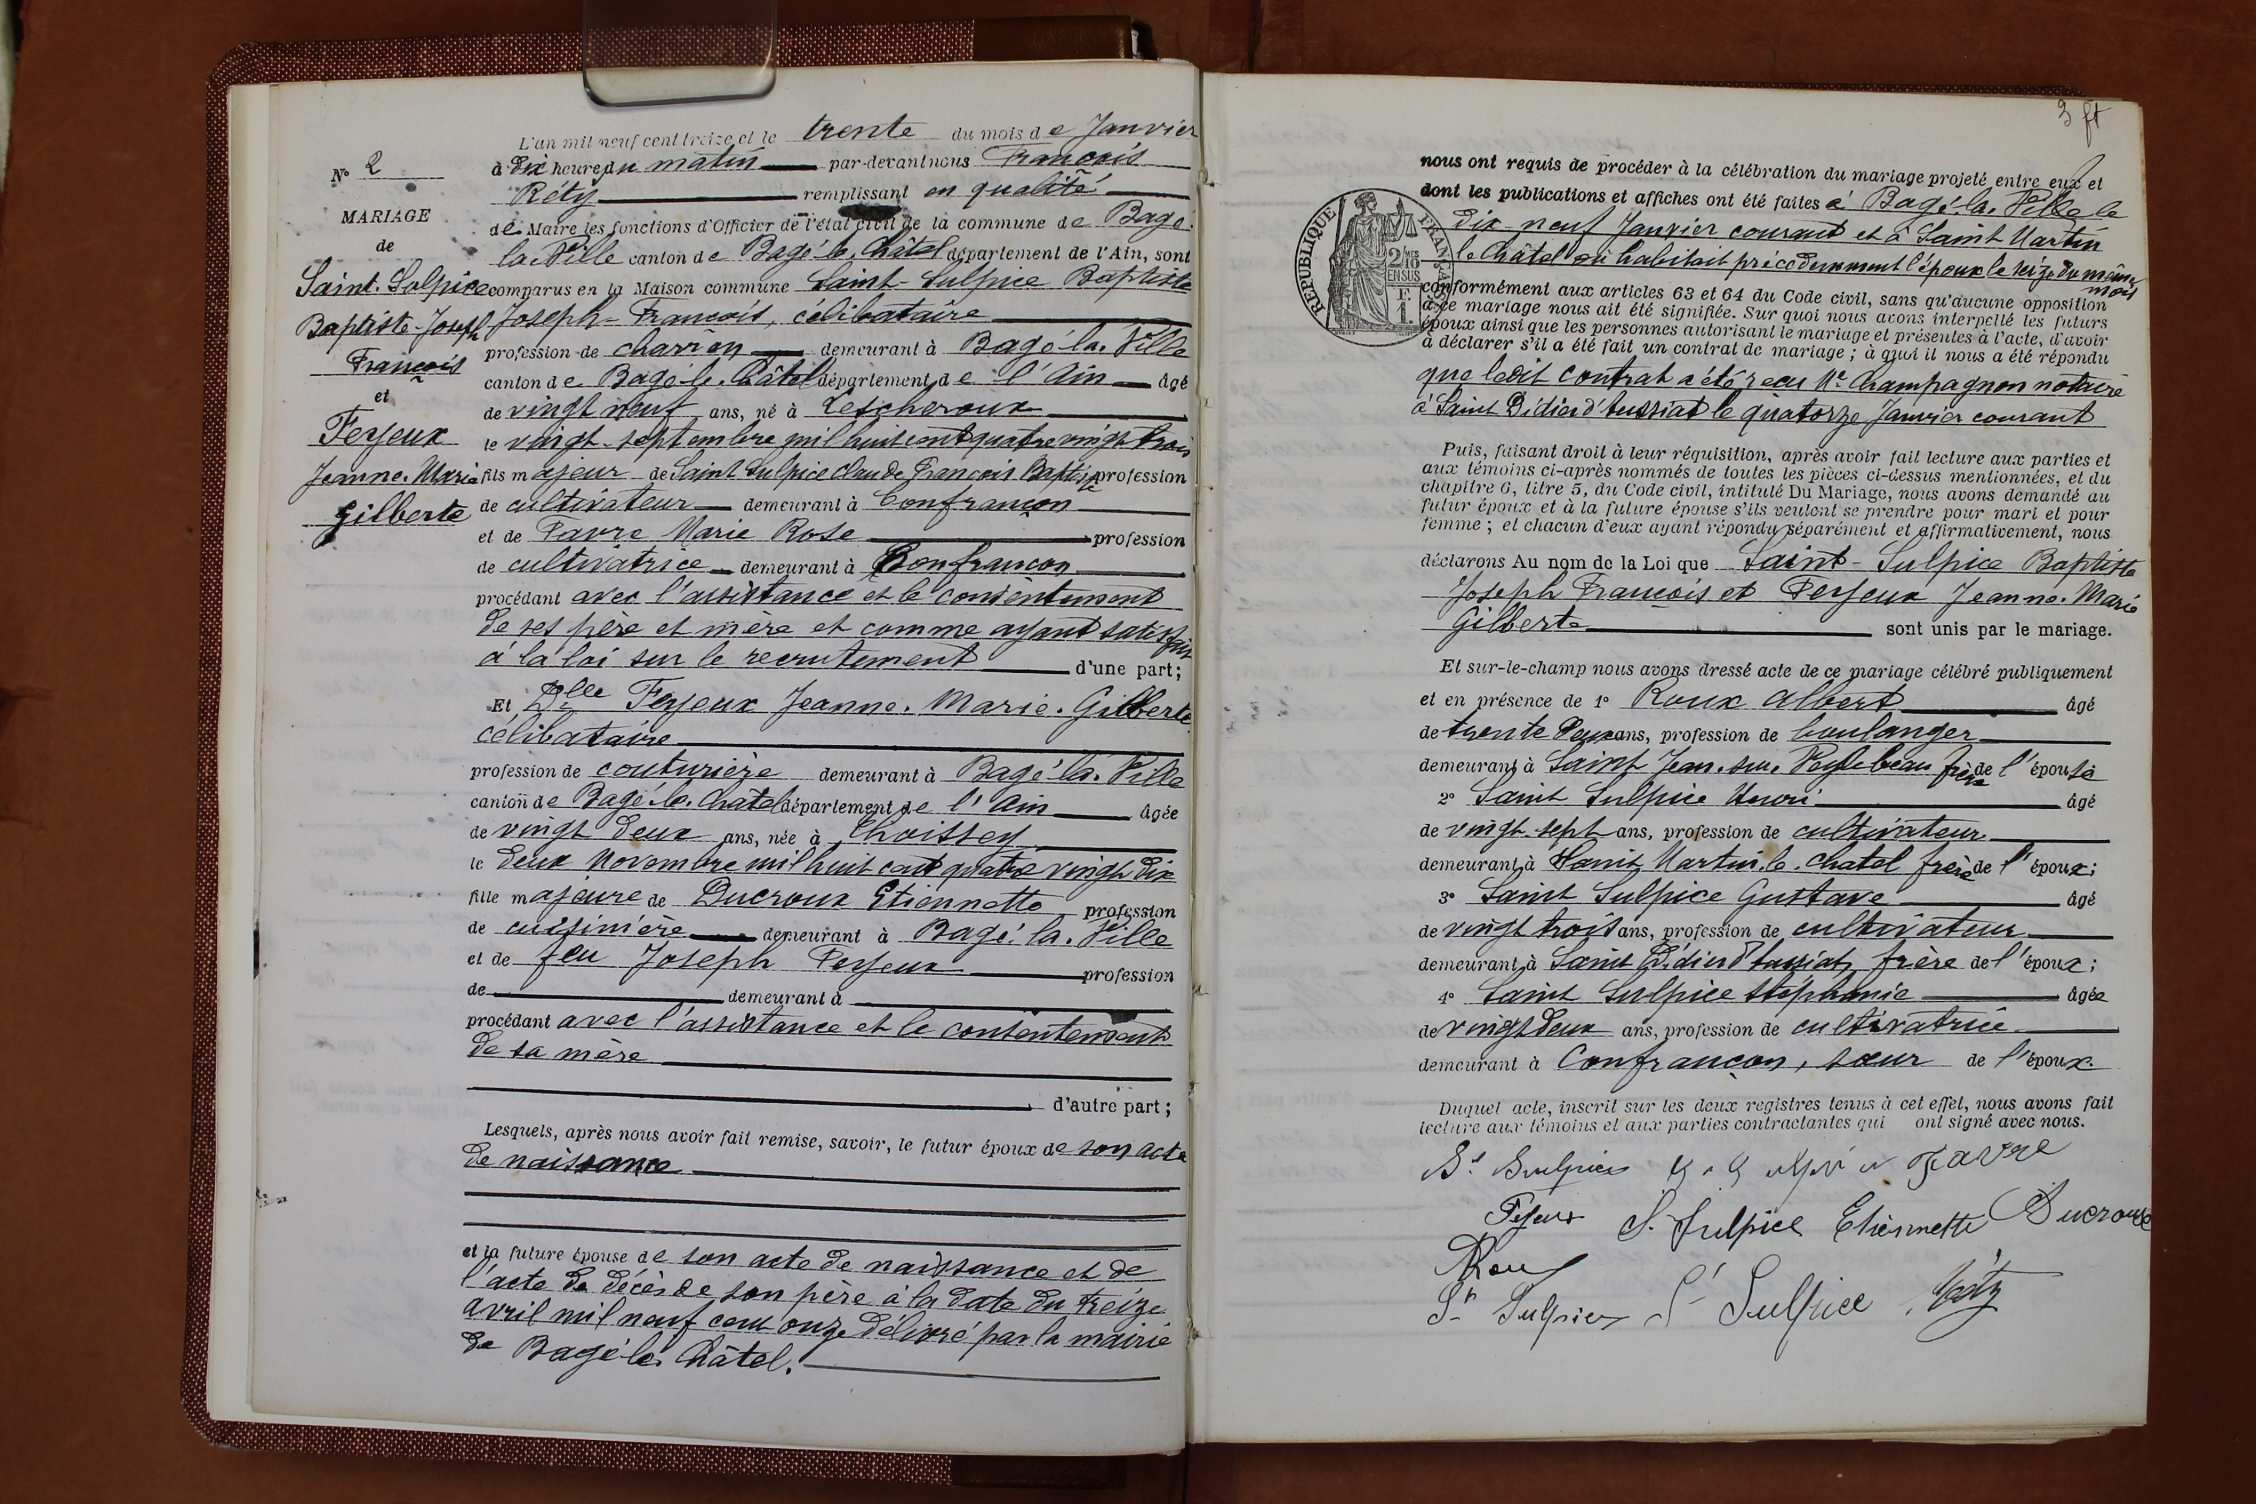 N° 2
MARIAGE
de
Saint-Sulpice
Baptiste-Joseph
François
et
Feyeux
Jeanne-Marie
Gilberte
L'an mil neuf cent treize, et le trente du mois de Janvier
à dix heures du matin par-devant nous François
Réty remplissant en qualité
de Maire les fonctions d'Officier de l'état civil de la commune de Bagé
la Ville canton de Bagé-le-Châtel département de l'Ain, sont
comparus en la Maison commune Saint-Sulpice Baptiste
Joseph-François, célibataire
profession de charron demeurant à Bagé-la-Ville
canton de Bagé-le-Châtel département de l'Ain âgé
de vingt neuf ans, né à Lescheroux
le vingt-septembre mil huit cent quatre vingt trois
fils majeur de Saint Sulpice Claude François Baptiste profession
de cultivateur demeurant à Confrançon
et de Favre Marie Rose profession
de cultivatrice demeurant à Confrançon
procédant avec l'assistance et le consentement
de ses père et mère et comme ayant satisfait
à la loi sur le recrutement d'une part;
Et Dlle Feyeux Jeanne-Marie-Gilberte
célibataire
profession de couturière demeurant à Bagé-la-Ville
canton de Bagé-le-Châtel département de l'Ain âgée
de vingt deux ans, née à Choissey
le deux Novembre mil huit cent quatre vingt dix
fille majeure de Ducroux Etiennette profession
de cuisinière demeurant à Bagé-la-Ville
et de feu Joseph Feyeux profession
de demeurant à
procédant avec l'assistance et le consentement
de sa mère
d'autre part;
Lesquels, après nous avoir fait remise, savoir, le futur époux de son acte
de naissance
et la future épouse de son acte de naissance et de
l'acte de décès de son père à la date du treize
avril mil neuf cent onze délivré par la mairie
de Bagé-le-Châtel.
3 ft
nous ont requis de procéder à la célébration du mariage projeté entre eux et
dont les publications et affiches ont été faites à Bagé-la-Ville le
dix-neuf Janvier courant et à Saint Martin
le Châtel où habitait précédemment l'époux le seize du même
mois
RÉPUBLIQUE FRANÇAISE
2/10 MES
EN SUS
F.
1
conformément aux articles 63 et 64 du Code civil, sans qu'aucune opposition
à ce mariage nous ait été signifiée. Sur quoi nous avons interpellé les futurs
époux ainsi que les personnes autorisant le mariage et présentes à l'acte, d'avoir
à déclarer s'il a été fait un contrat de mariage; à quoi il nous a été répondu
que ledit contrat a été reçu Me Champagnon notaire
à Saint Didier d'Aussiat le quatorze Janvier courant
Puis, faisant droit à leur réquisition, après avoir fait lecture aux parties et
aux témoins ci-après nommés de toutes les pièces ci-dessus mentionnées, et du
chapitre 6, titre 5, du Code civil, intitulé Du Mariage, nous avons demandé au
futur époux et à la future épouse s'ils veulent se prendre pour mari et pour
femme; et chacun d'eux ayant répondu séparément et affirmativement, nous
déclarons Au nom de la Loi que Saint-Sulpice Baptiste
Joseph François et Feyeux Jeanne-Marie
Gilberte sont unis par le mariage.
Et sur-le-champ nous avons dressé acte de ce mariage célébré publiquement
et en présence de 1° Roux Albert âgé
de trente deux ans, profession de boulanger
demeurant à Saint Jean-sur-Veyle beau frère de l'épouse
2° Saint Sulpice Henri âgé
de vingt-sept ans, profession de cultivateur
demeurant à Saint Martin-le-Chatel frère de l'époux;
3° Saint Sulpice Gustave âgé
de vingt trois ans, profession de cultivateur
demeurant à Saint Didier d'Aussiat, frère de l'époux;
4° Saint Sulpice Stéphanie âgée
de vingt deux ans, profession de cultivatrice
demeurant à Confrançon, sœur de l'époux.
Duquel acte, inscrit sur les deux registres tenus à cet effet, nous avons fait
lecture aux témoins et aux parties contractantes qui ont signé avec nous.
St Sulpice Favre
Feyeux S. Sulpice Etiennette Ducroux
Roux
St Sulpice St Sulpice Réty